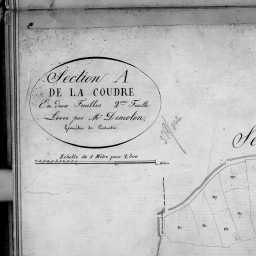 Section A
DE LA COUDRE
En deux Feuilles 2me Feuille
Levée par Mr Demolon,
Géomètre du Cadastre
Echelle de 1 Mètre pour 2,500
Se